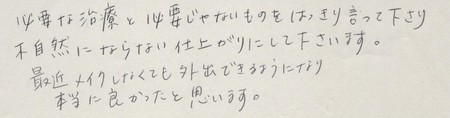 必要な治療と必要じゃないものをはっきり言って下さり
不自然にならない仕上がりにして下さいます。
最近メイクしなくても外出できるようになり
本当に良かったと思います。